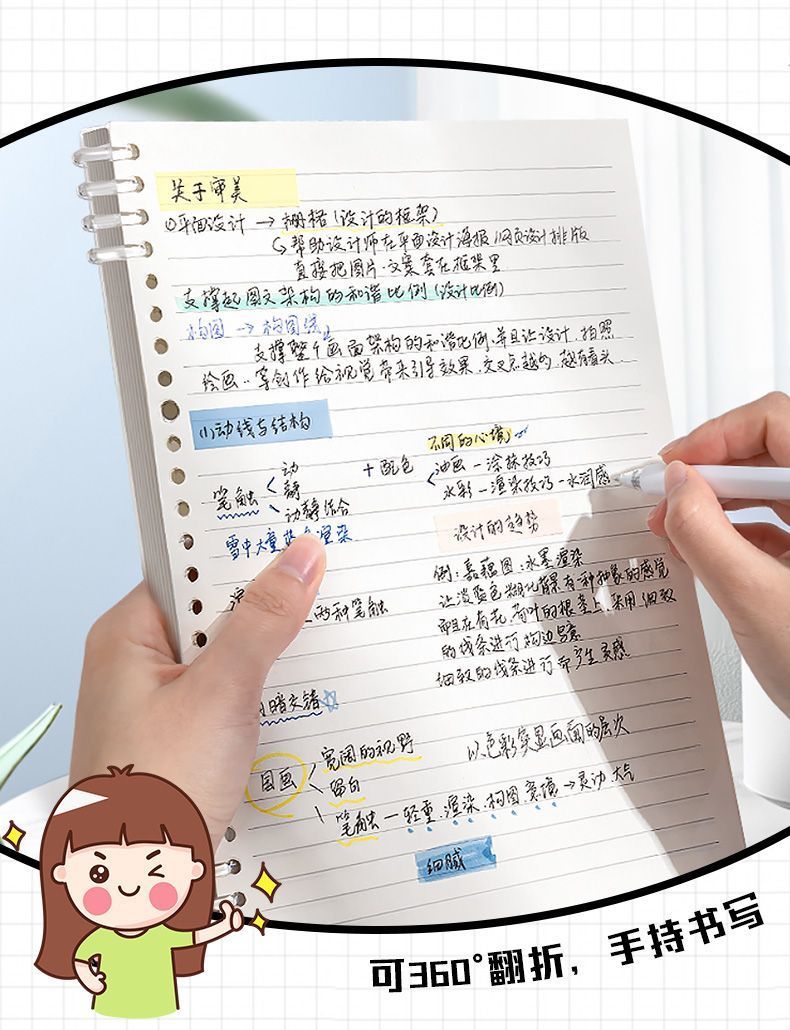 关于审美
①平面设计 → 栅格(设计的框架)
↳帮助设计师在平面设计海报、网页设计排版
直接把图片、文案套在框架里
支撑起图文架构的和谐比例(设计比例)
构图 → 构图线
支撑整个画面架构的和谐比例、并且让设计、拍照
绘画..等创作给视觉带来引导效果、交叉点越多,越有看头
(1)动线与结构
不同的心境
动
笔触 静 + 配色 油画-涂抹技巧
动静结合 水彩-渲染技巧-水润感
雪中大量 渲染 设计的趋势
例:嘉蕴图:水墨渲染
两种笔触 让淡蓝色糊化背景有种抽象的感觉
而且在荷花、荷叶的根茎上,采用细致
的线条进行构边
细致的线条进行 产生灵感
暗交错
宽阔的视野 以色彩突显画面的层次
国画 留白
笔触-轻重、渲染、构图、意境→灵动、大气
细腻
可360°翻折,手持书写